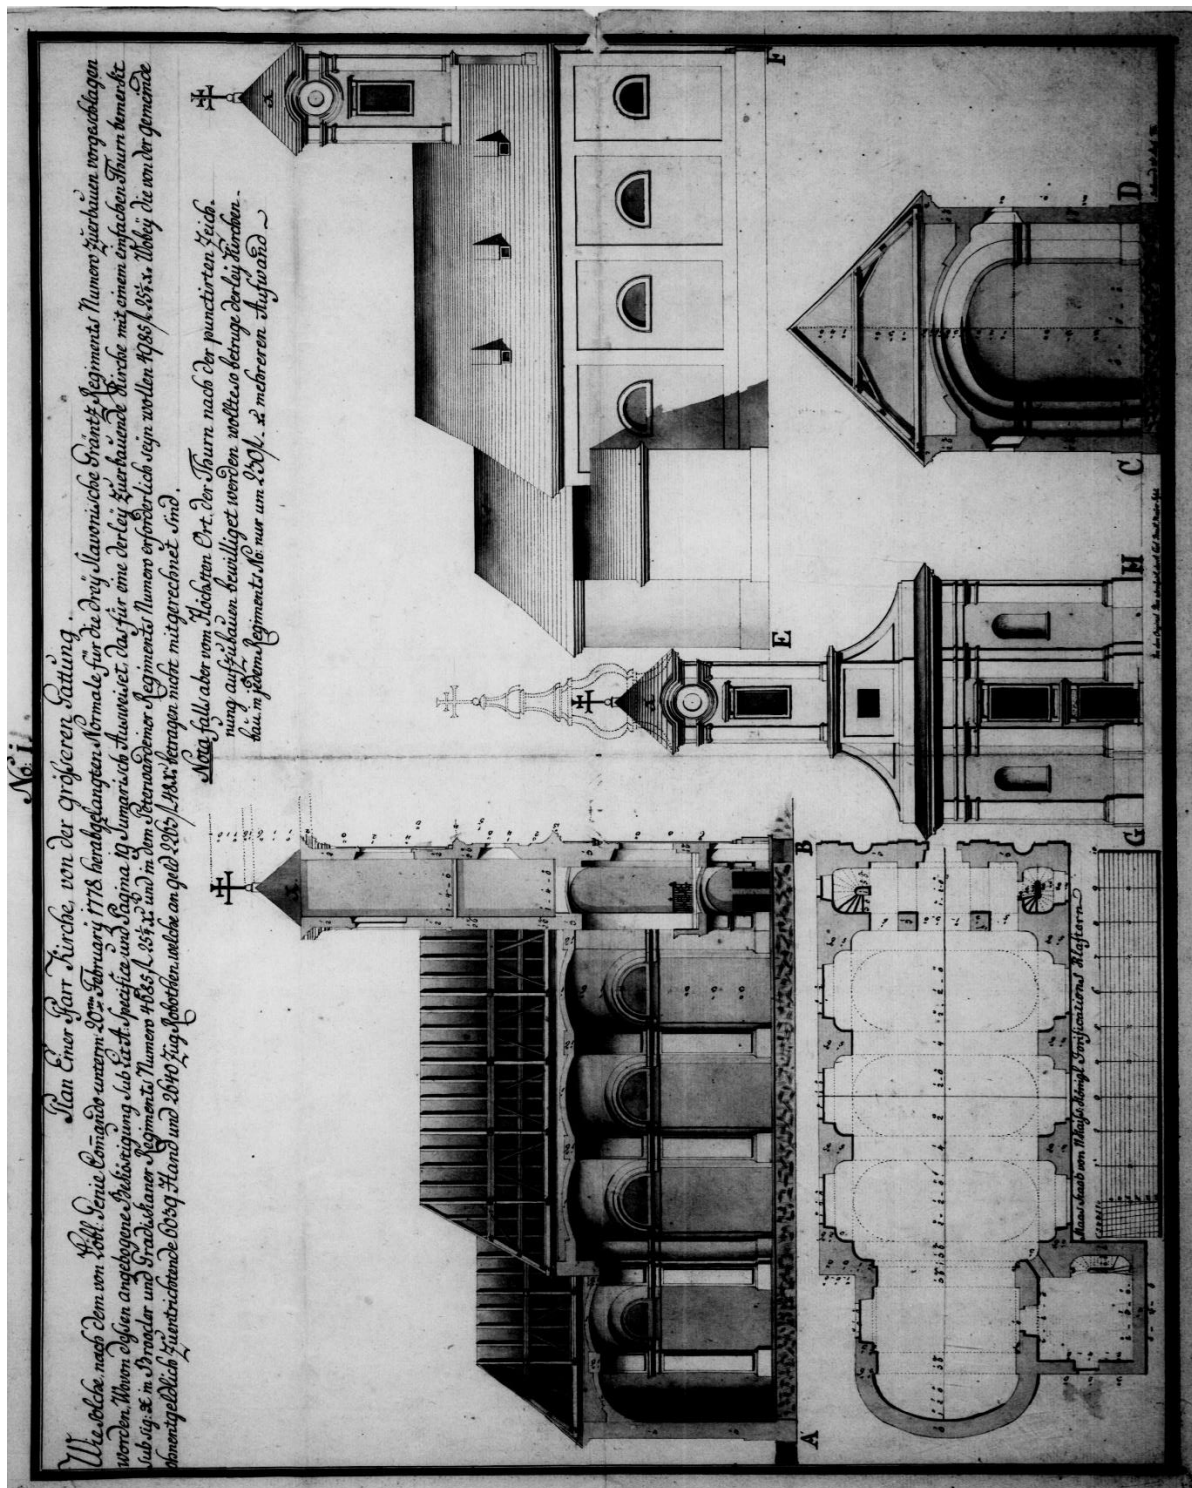 No. 1.
Plan Einer Pfarr Kirche, von der größeren Gattung.
Wie solche, nach dem vom Löbl. Genie Comando unterm 20ten February 1778 herabgelangten Normale, für die dreÿ Slavonische Gräntz Regiments Numero zuerbauen vorgeschlagen
worden, Wovon dessen angebogene Behörtigung Sub Lit: A specifice und Pagina 19 Sumarisch Ausweiset, das für eine derleÿ zuerbauende Kirche mit einem einfachen Thurn bemerkt
sub sig: x in Brooder und Gradiskaner Regiments Numero 4685 f. 25 x. und in dem Peterwardeiner Regiments Numero erforderlich seÿn wollen 4985 f. 25 x. Wobeÿ die von der gemeinde
ohnentgeldlich zuentrichtende 6039 Hand und 2640 Zug Robothen, welche an geld 2203 f. 48 x. betragen nicht mitgerechnet sind.
Nota falls aber vom Höchsten Ort, der Thurn nach der punctirten Zeich-
nung aufzubauen bewilliget werden wollte, so betruge derleÿ Kirchen-
bau in jedem Regiments No: nur um 250 f. x mehreren Aufwand
A
B
C
D
E
F
G
H
Maas staab von 11 Kaÿsl. Königl. Fortifications Klaftern